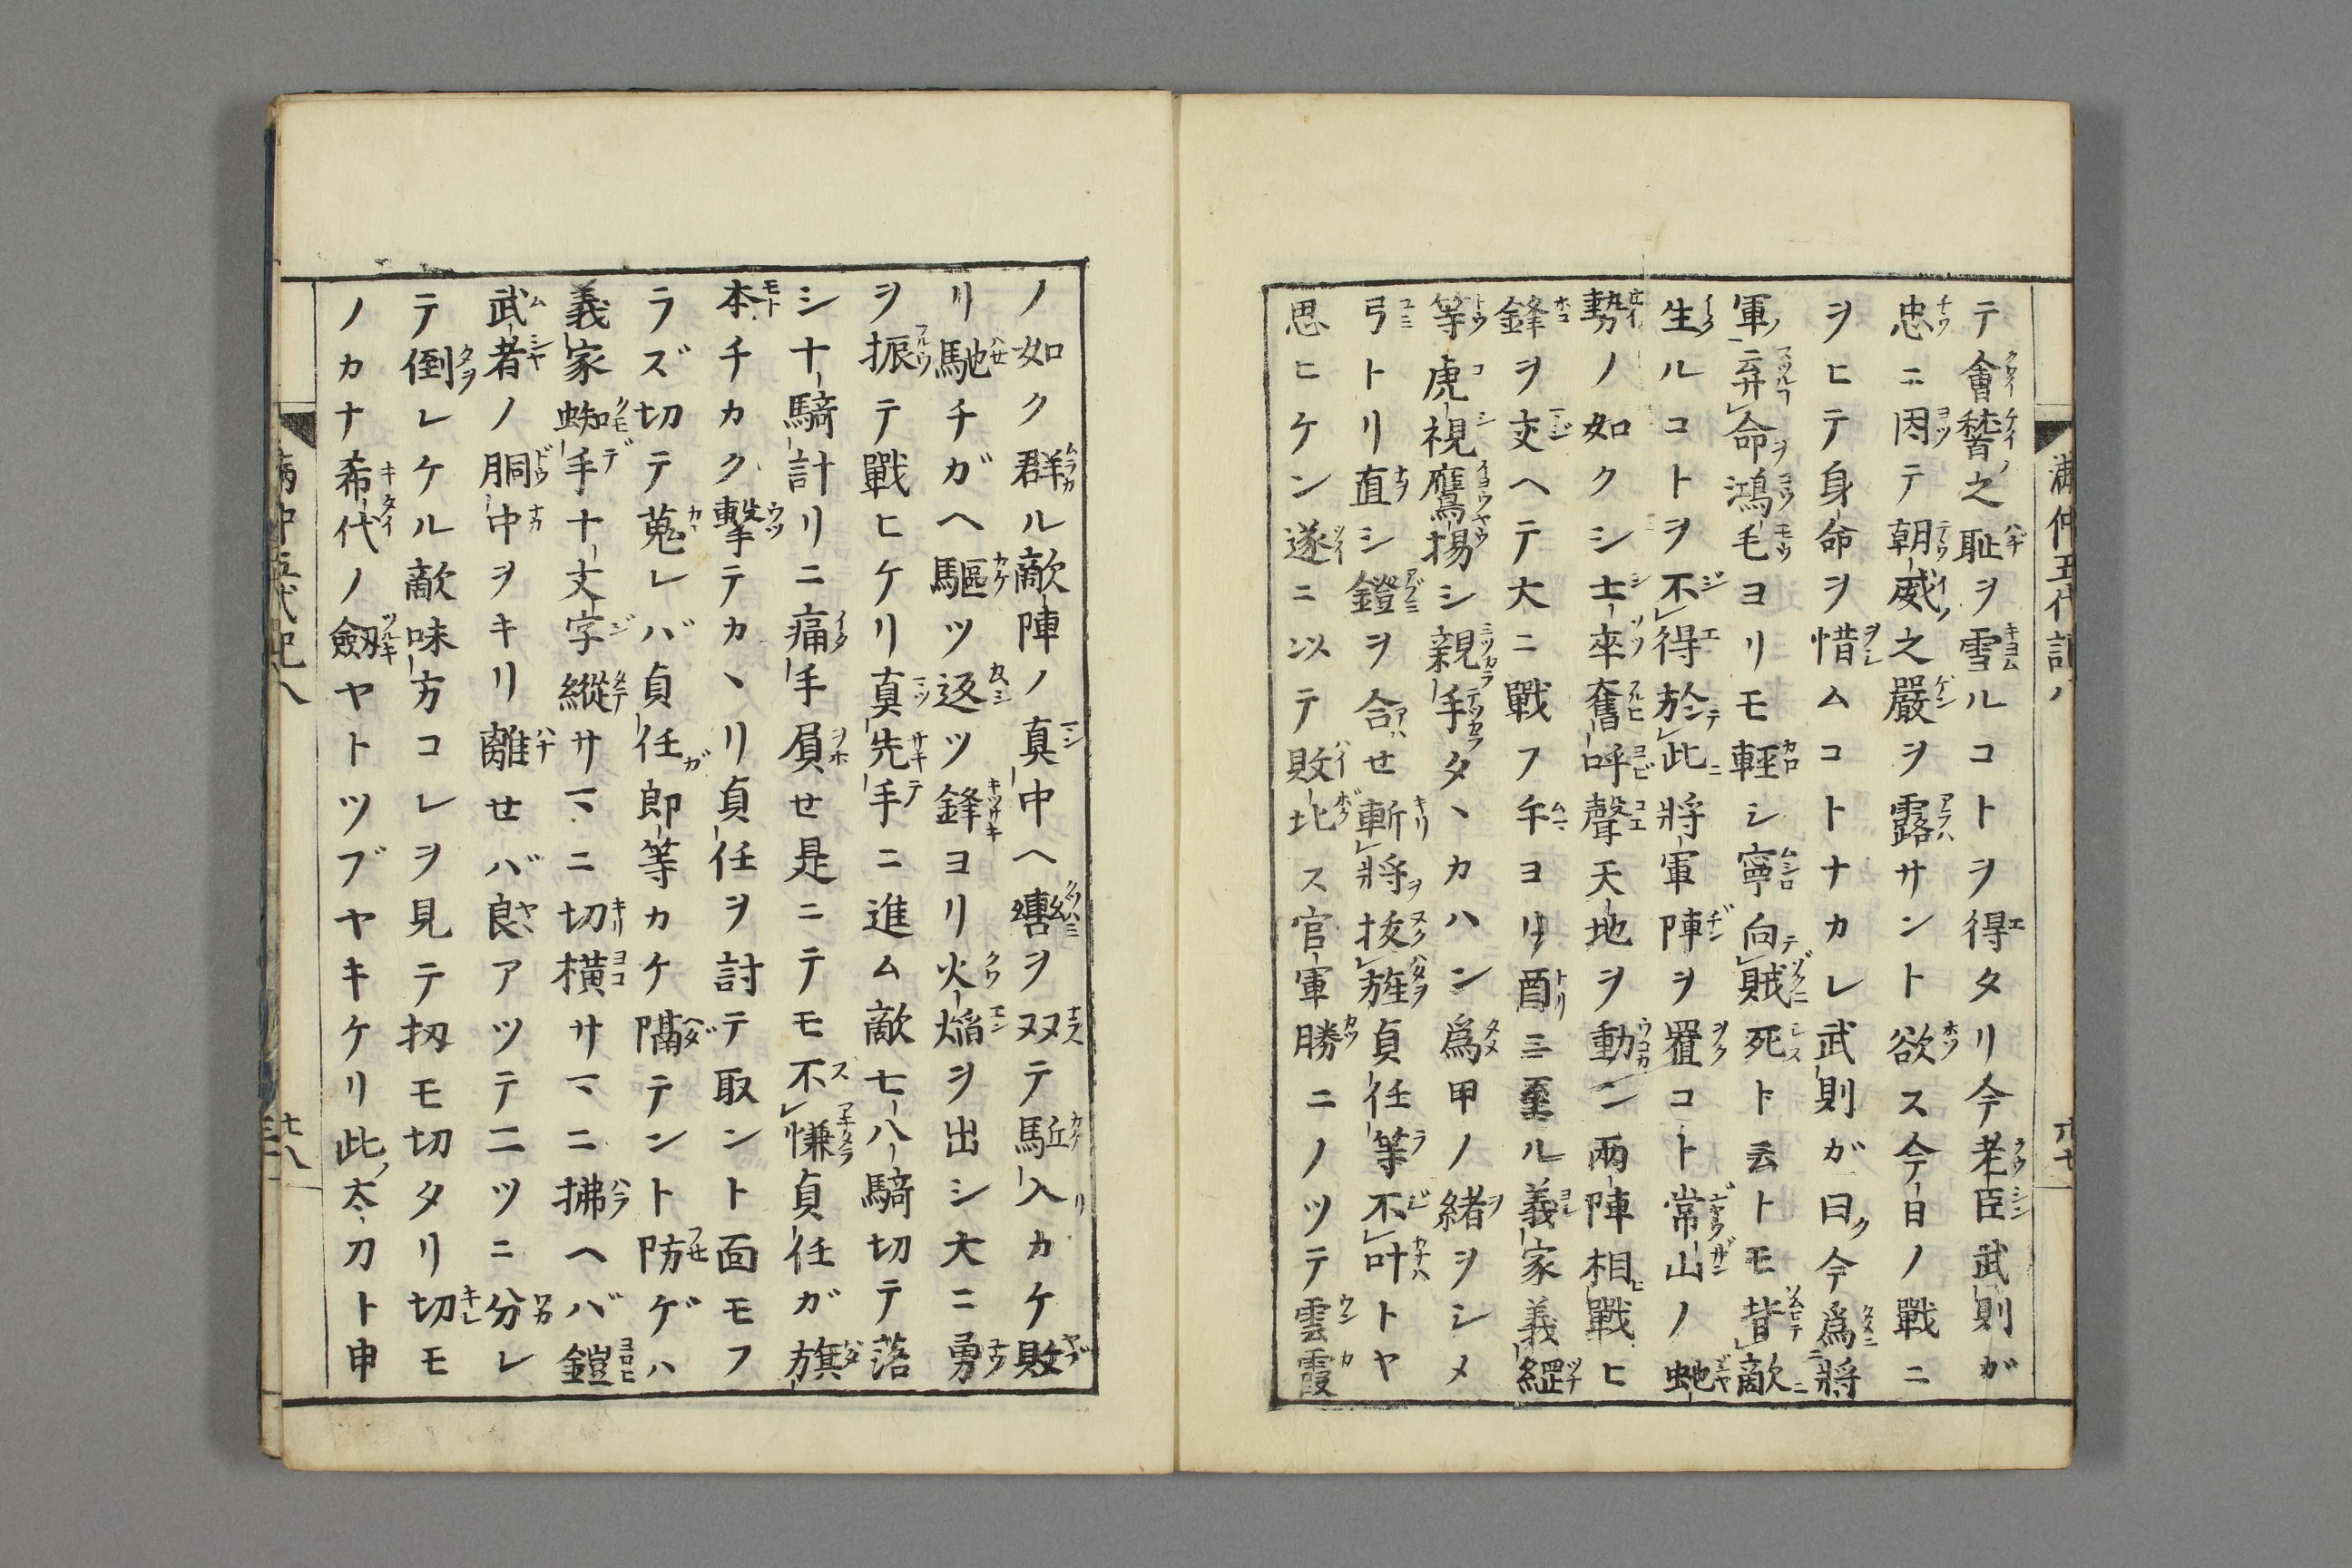 テ會稽之恥ヲ雪ルコトヲ得タリ今老臣武則ガ
忠ニ因テ朝威之嚴ヲ露サント欲ス今日ノ戰ニ
ヲヒテ身命ヲ惜ムコトナカレ武則ガ曰今爲將
軍ニ弃命鴻毛ヨリモ輕シ寧向賊死ト云トモ背敵
生ルコトヲ不得於此將軍陣ヲ置コト常山ノ虵
勢ノ如クシ士卒奮呼聲天地ヲ動ン兩陣相戰ヒ
鋒ヲ交ヘテ大ニ戰フ午ヨリ酉ニ至ル義家義綱
等虎視鷹揚シ親手タヽカハン爲甲ノ緒ヲシメ
弓トリ直シ鐙ヲ合せ斬將拔旌貞任等不叶トヤ
思ヒケン遂ニ以テ敗北ス官軍勝ニノツテ雲霞
ノ如ク群ル敵陣ノ真中ヘ轡ヲ双テ駈入カケ敗
リ馳チガヘ驅ツ返ツ鋒ヨリ火焔ヲ出シ大ニ勇
ヲ振テ戰ヒケリ真先手ニ進ム敵七八騎切テ落
シ十騎計リニ痛手屓せ是ニテモ不慊貞任ガ旗
本チカク擊テカヽリ貞任ヲ討テ取ント面モフ
ラズ切テ蒐レバ貞任郎等カケ隔テント防ゲハ
義家蜘手十文字縱サマニ切橫サマニ拂ヘバ鎧
武者ノ胴中ヲキリ離せバ良アツテ二ツニ分レ
テ倒レケル敵味方コレヲ見テ扨モ切タリ切モ
ノカナ希代ノ劔ヤトツブヤキケリ此太刀ト申
滿仲五代記八
六十
七八